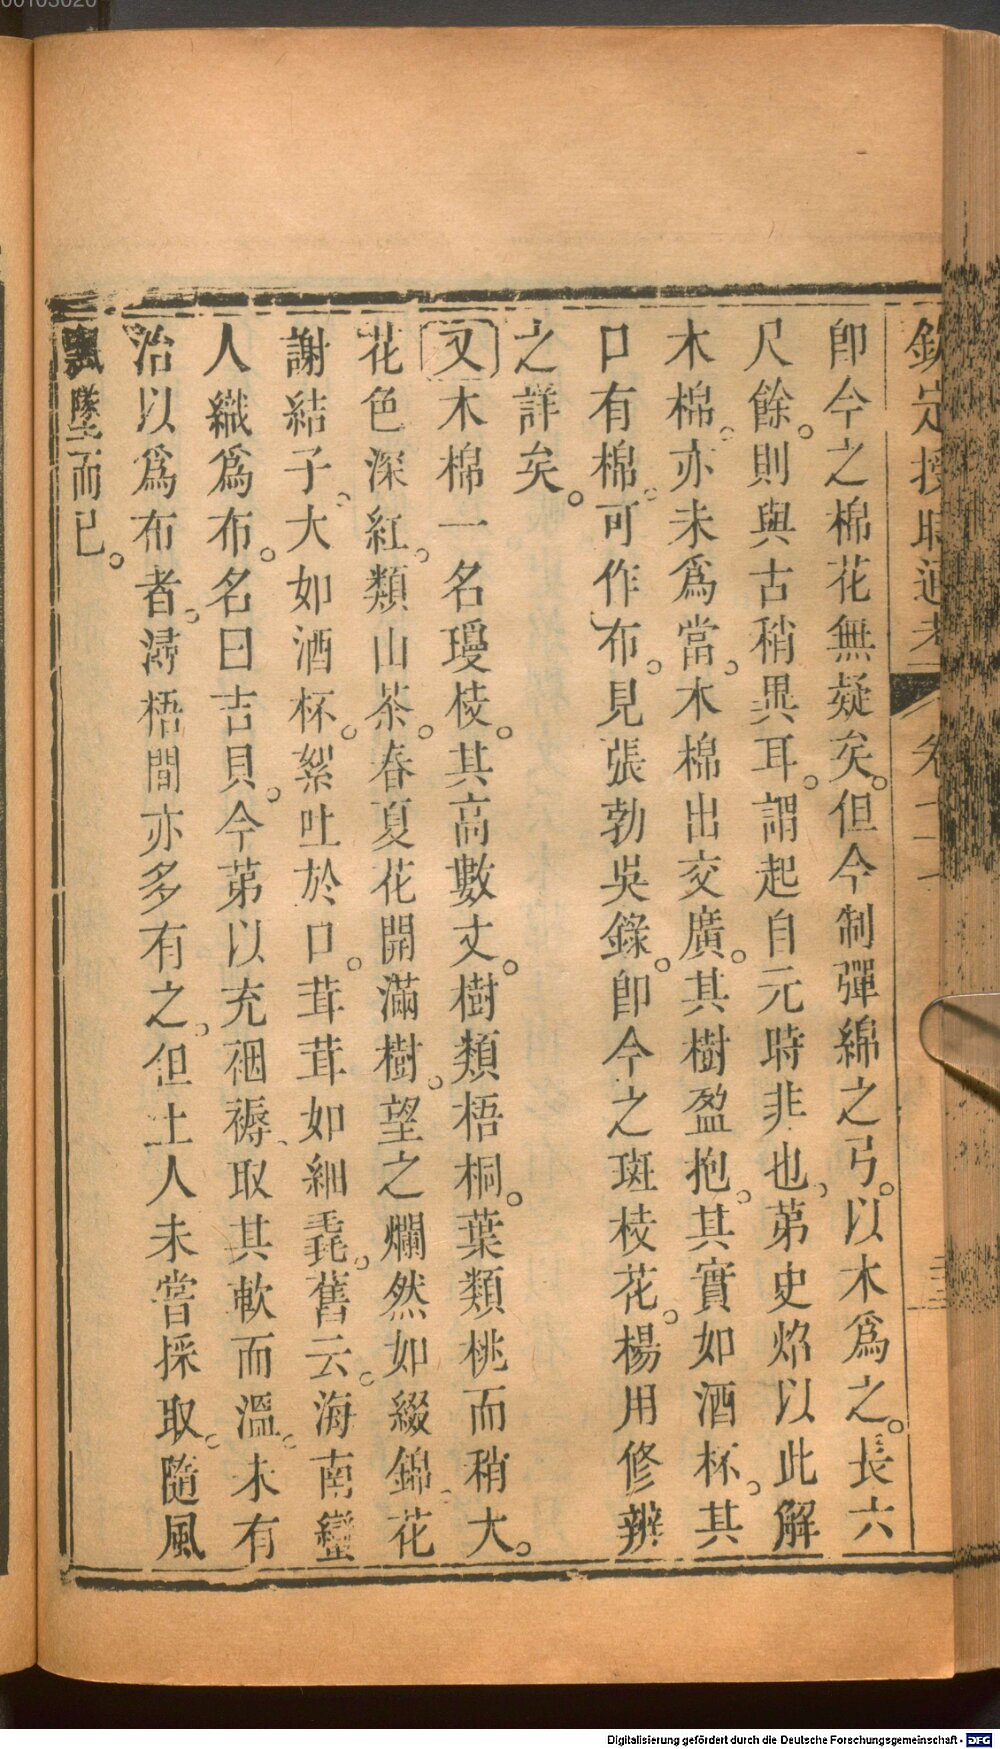 欽定授時通考 卷
即今之棉花無疑矣。但今制彈綿之弓。以木爲之。長六
尺餘。則與古稍異耳。謂起自元時非也。第史炤以此解
木棉。亦未爲當。木棉出交廣。其樹盈抱。其實如酒杯。其
口有棉。可作布。見張勃吳錄。即今之斑枝花。楊用修辨
之詳矣。
又木棉一名瓊枝。其高數丈。樹類梧桐。葉類桃而稍大。
花色深紅。類山茶。春夏花開滿樹。望之爛然如綴錦。花
謝結子。大如酒杯。絮吐於口。茸茸如細毳。舊云。海南蠻
人織爲布。名曰吉貝。今第以充裀褥、取其軟而溫。未有
治以爲布者。潯梧間亦多有之。但土人未嘗採取。隨風
飄墜而已。
00103020
Digitalisierung gefördert durch die Deutsche Forschungsgemeinschaft - DFG